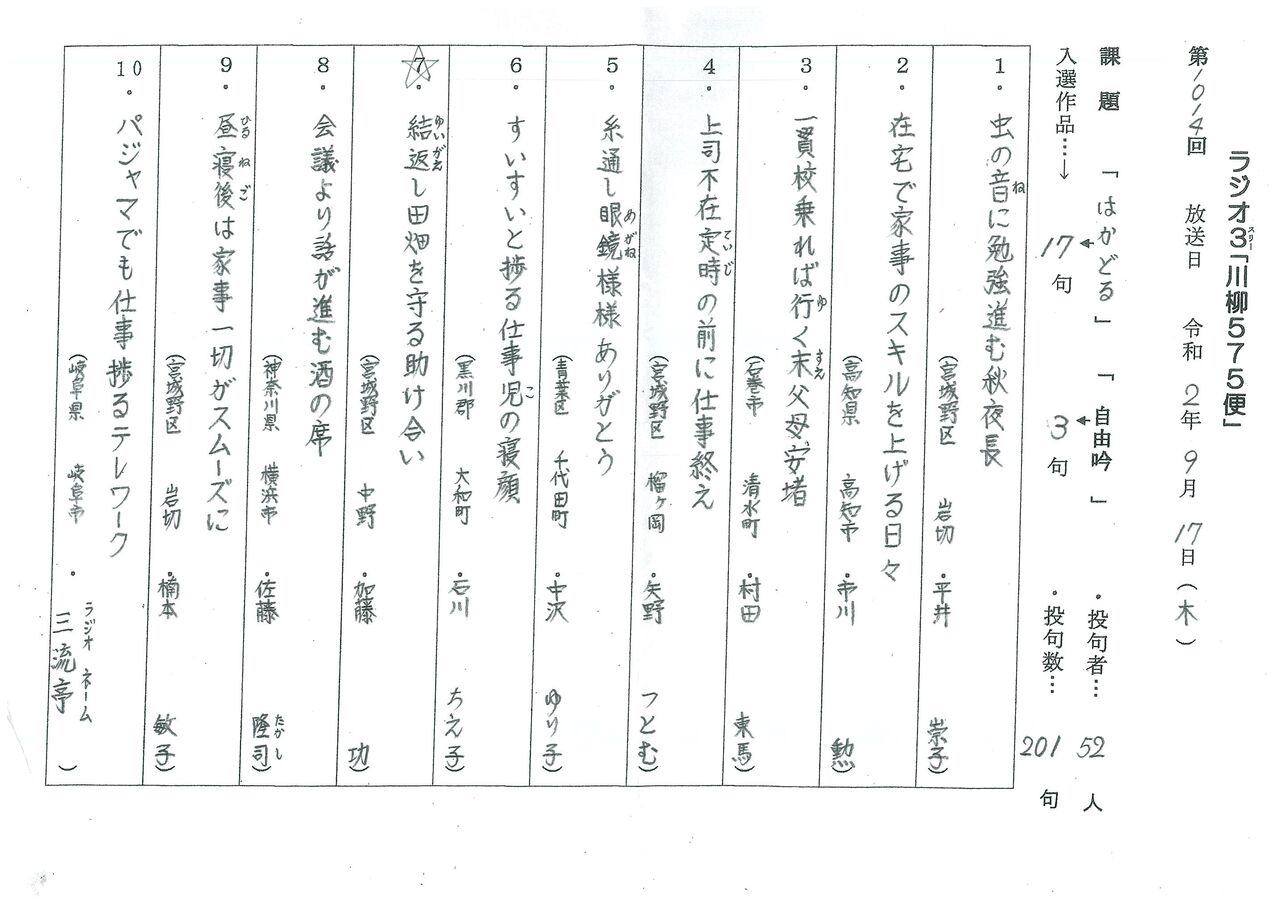 ラジオ3「川柳575便」
スリー
第1014回 放送日 令和2年9月17日(木)
課題 「はかどる」 「自由吟」 ・投句者… 52人
入選作品…→ 17句 3句 ・投句数… 201句
1. 虫の音に勉強進む秋夜長
ね
(宮城野区 岩切 ・平井 崇子)
2. 在宅で家事のスキルを上げる日々
(高知県 高知市 ・市川 勲)
3. 一貫校乗れば行く末父母安堵
ゆ すえ
(石巻市 清水町 ・村田 東馬)
4. 上司不在定時の前に仕事終え
ていじ
(宮城野区 榴ヶ岡 ・矢野 つとむ)
5. 糸通し眼鏡様様ありがとう
めがね
(青葉区 千代田町 ・中沢 ゆり子)
6. すいすいと捗る仕事児の寝顔
こ
(黒川郡 大和町 ・石川 ちえ子)
7. 結返し田畑を守る助け合い
ゆいがえ
(宮城野区 中野 ・加藤 功)
8. 会議より話が進む酒の席
(神奈川県 横浜市 ・佐藤 隆司)
たかし
9. 昼寝後は家事一切がスムーズに
ひるねご
(宮城野区 岩切 ・楠本 敏子)
10. パジャマでも仕事捗るテレワーク
(岐阜県 岐阜市 ・ 三流亭 )
ラジオネーム